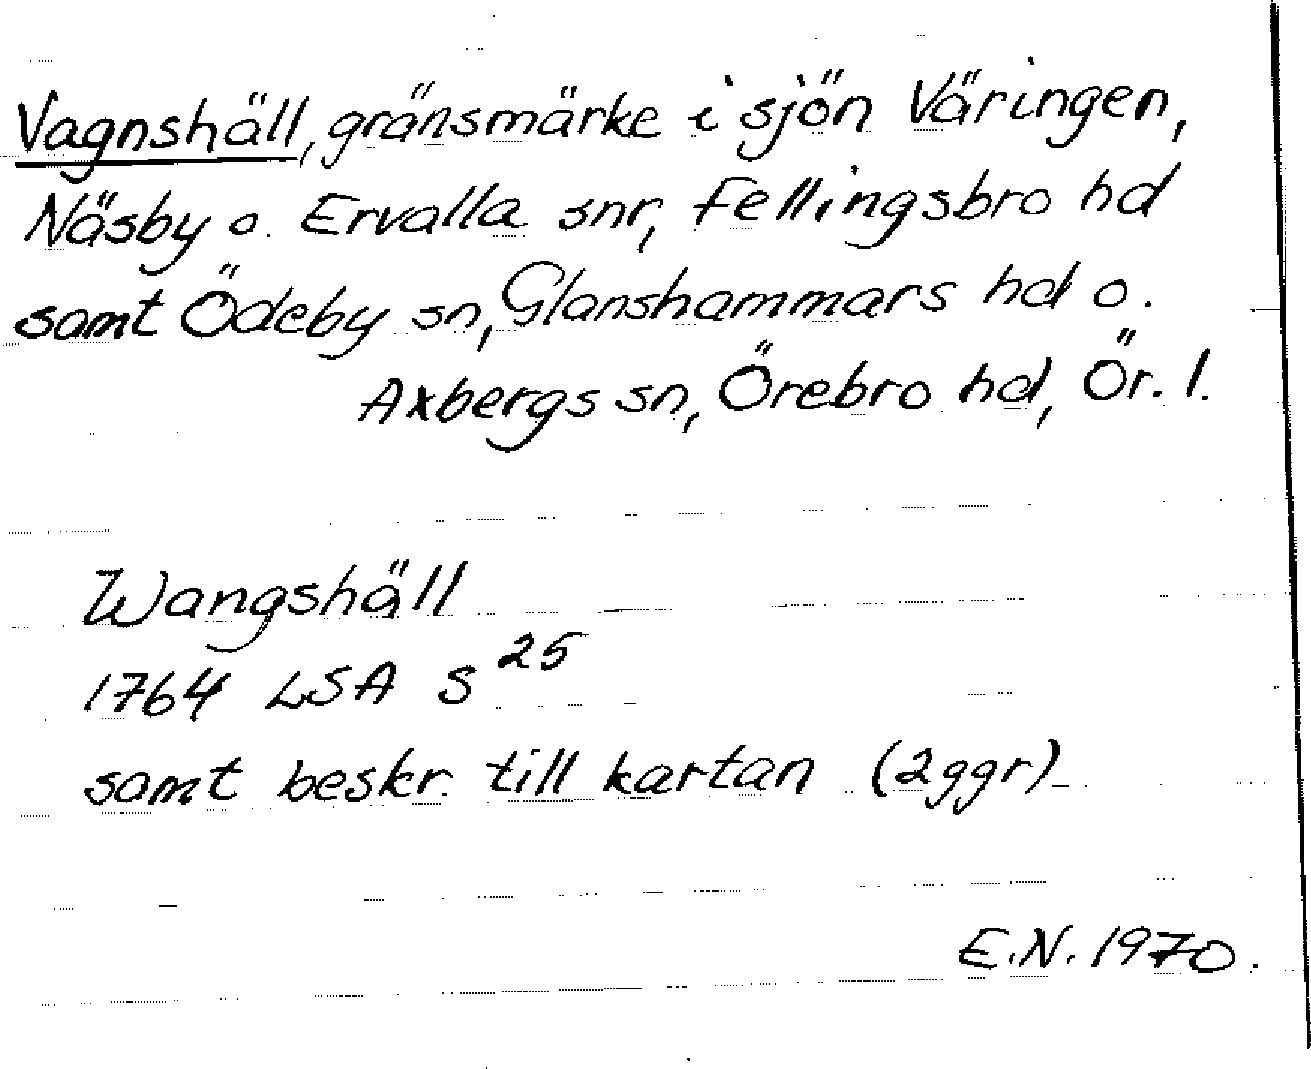 Vagnshäll, gränsmärke i sjön Väringen,
Näsby o. Ervalla snr, Fellingsbro hd
samt Ödeby sn, Glanshammars hd o.
Axbergs sn, Örebro hd, Ör. l.
Wangshäll
1764 LSA S 25
samt beskr. till kartan (2ggr)
E.N. 1970.